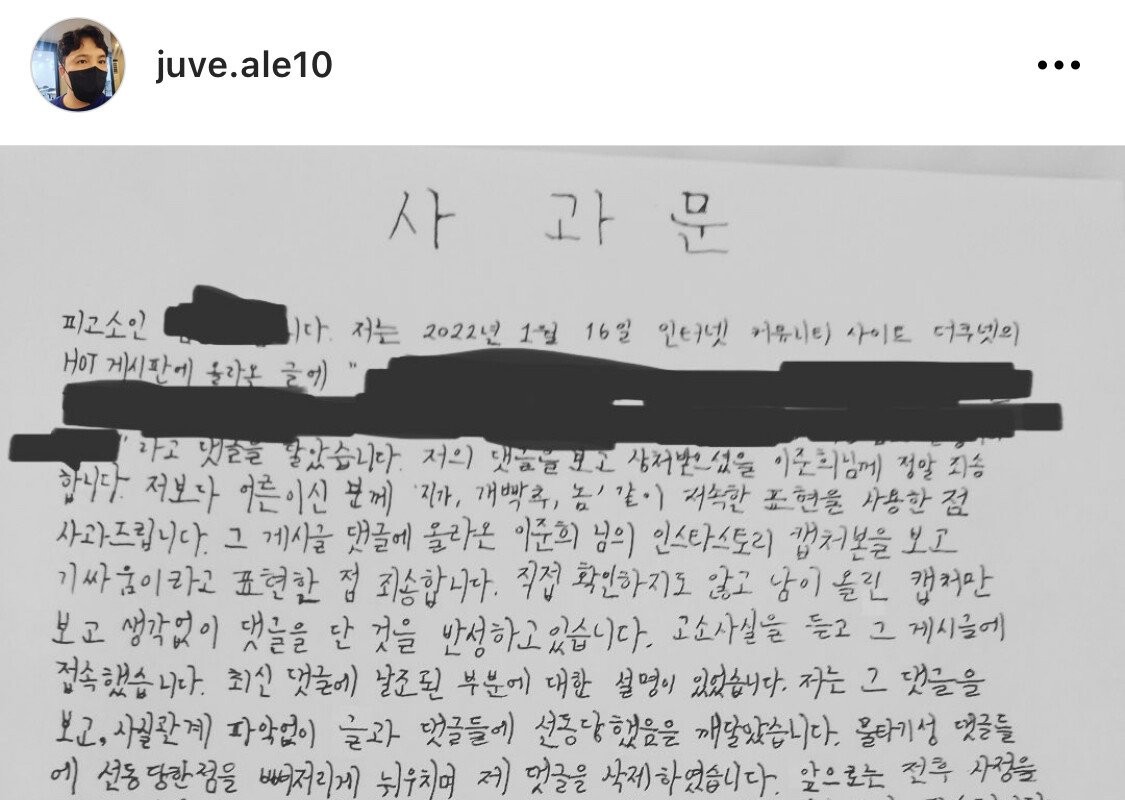 juve.ale10
사 과 문
피고소인 니다. 저는 2022년 1월 16일 인터넷 커뮤니티 사이트 더쿠넷의
HOT 게시판에 올라온 글에 "
"라고 댓글을 달았습니다. 저의 댓글을 보고 상처받으셨을 이준희님께 정말 죄송
합니다. 저보다 어른이신 분께 '지가, 개빡추, 놈' 같이 저속한 표현을 사용한 점
사과드립니다. 그 게시글 댓글에 올라온 이준희 님의 인스타스토리 캡처본을 보고
기싸움이라고 표현한 점 죄송합니다. 직접 확인하지도 않고 남이 올린 캡처만
보고 생각없이 댓글을 단 것을 반성하고 있습니다. 고소사실을 듣고 그 게시글에
접속했습니다. 최신 댓글에 날조된 부분에 대한 설명이 있었습니다. 저는 그 댓글을
보고, 사실관계 파악없이 글과 댓글들에 선동당했음을 깨달았습니다. 물타기성 댓글들
에 선동당한점을 뼈저리게 뉘우치며 제 댓글을 삭제하였습니다. 앞으로는 전후 사정을